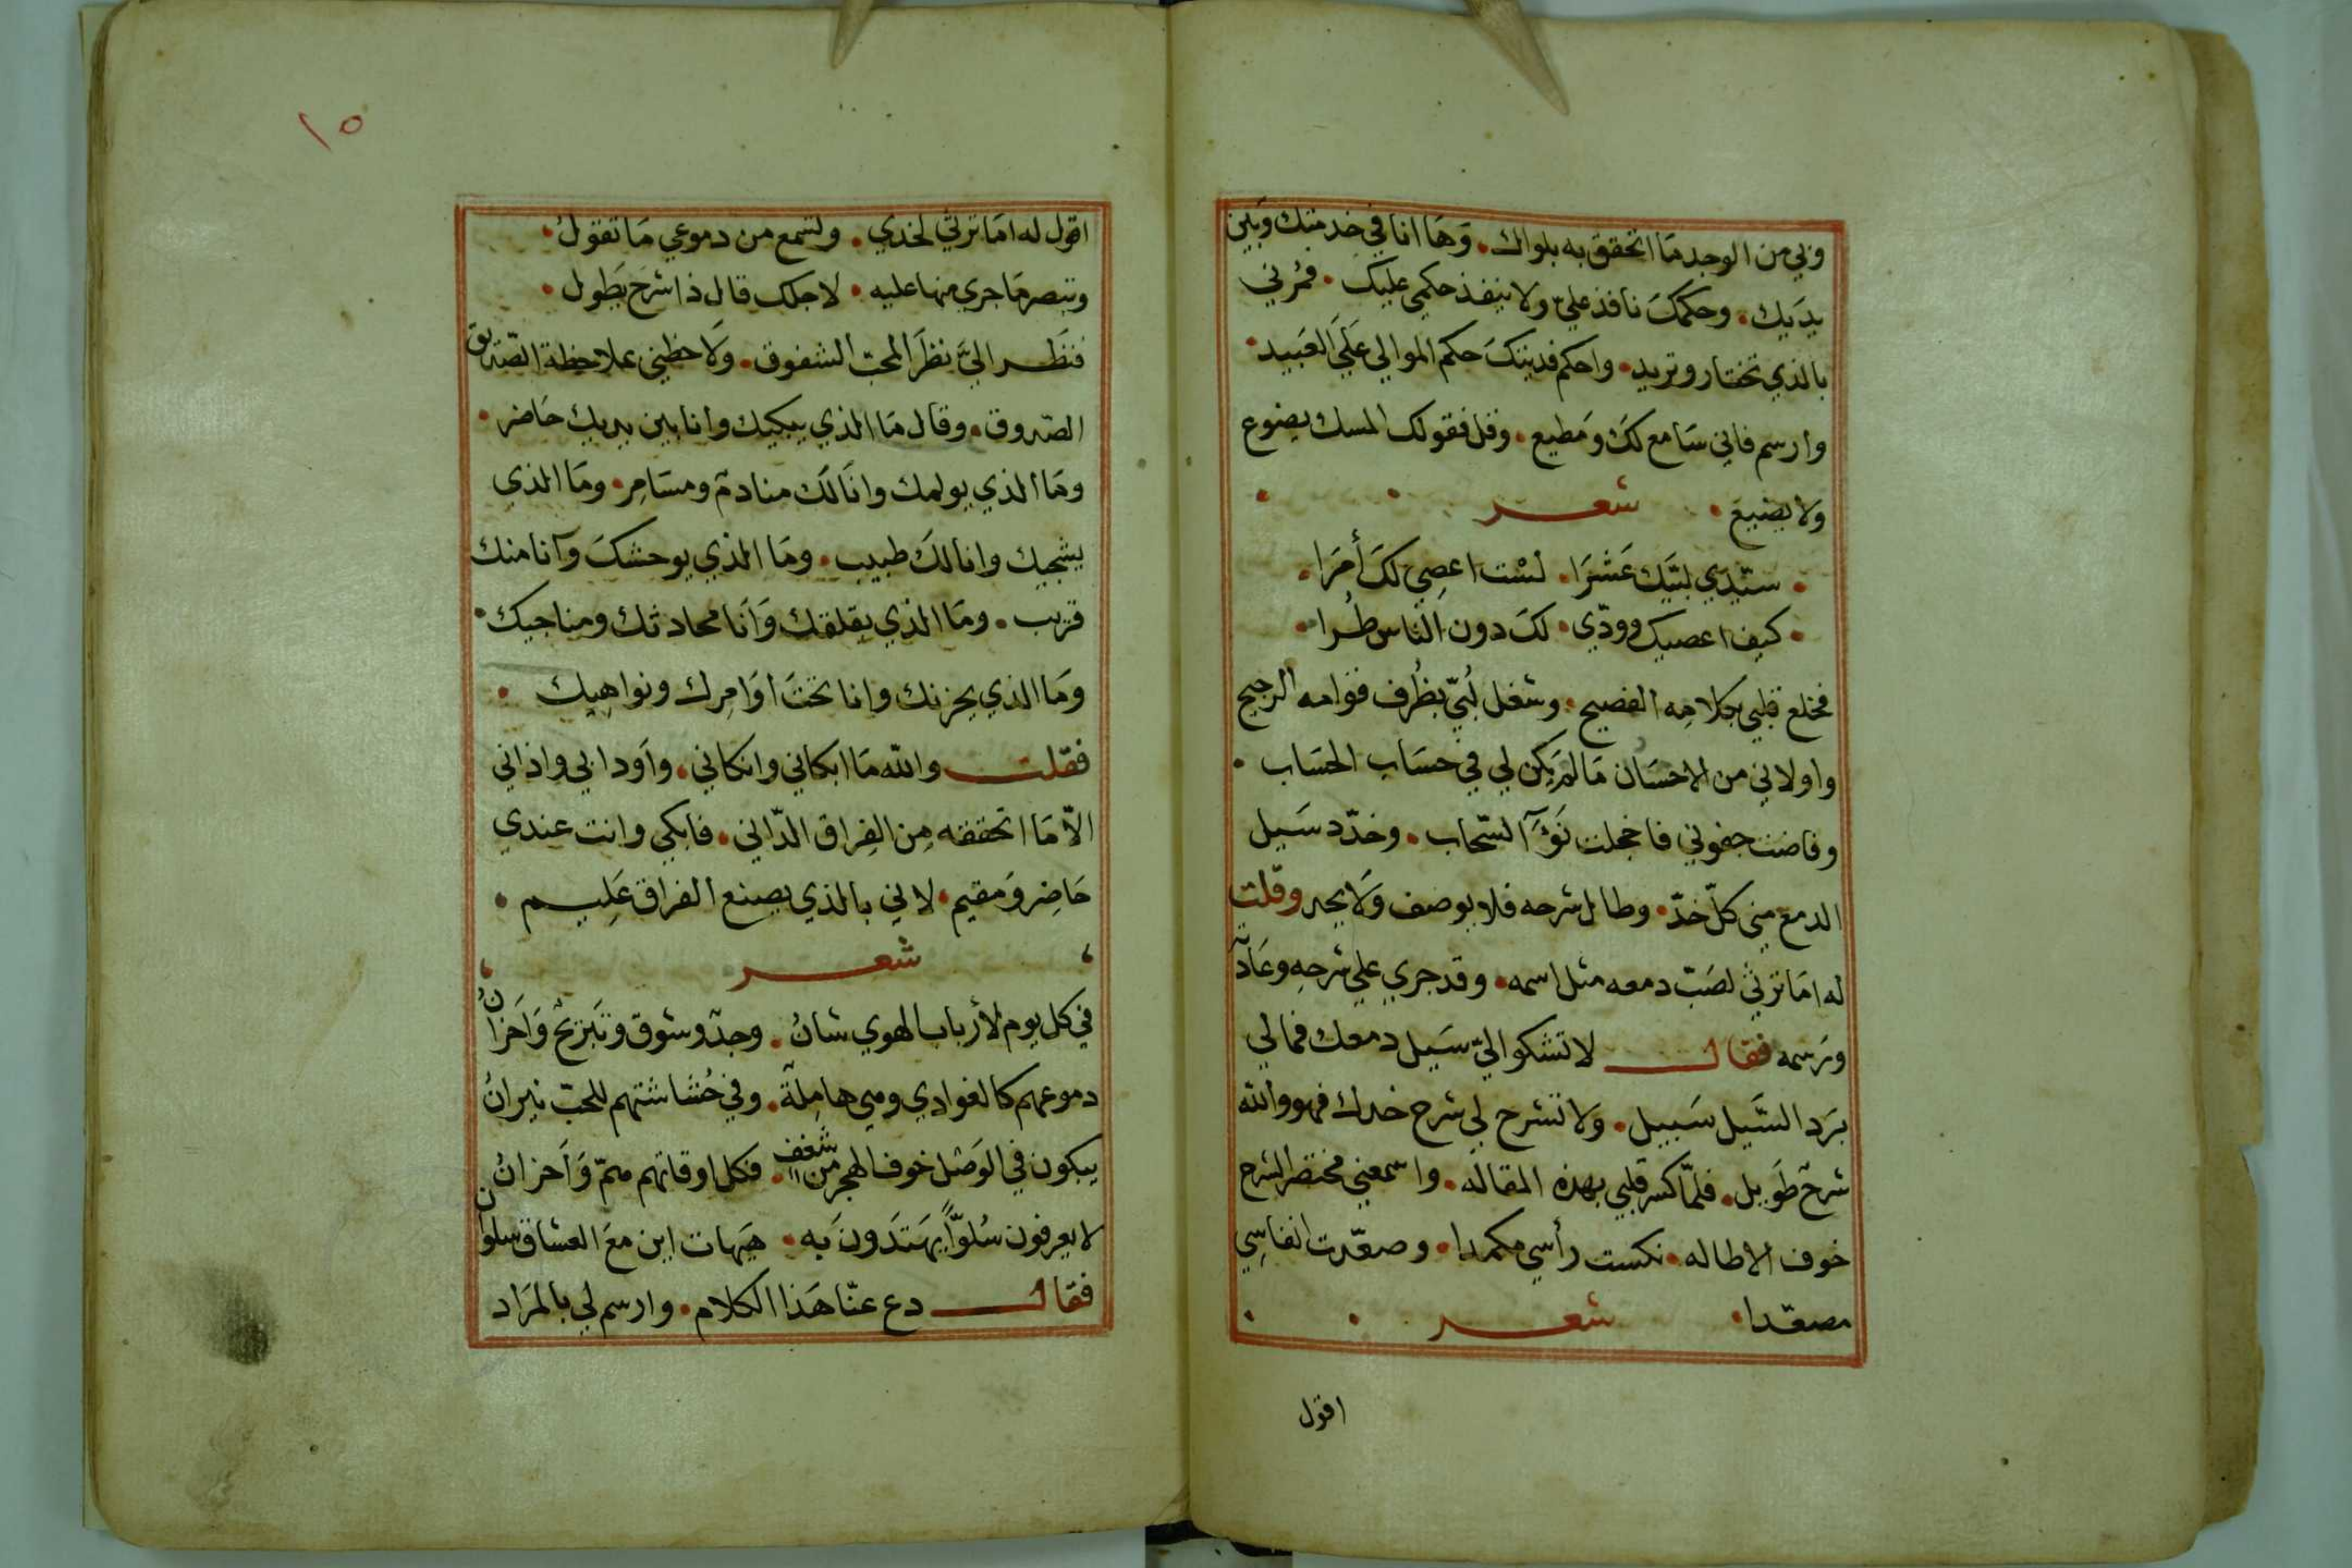 وبي من الوجد مَا اتحقق به بلواك. وَهَا انا في خِدمتك وَبَين
يدَيك. وحكمكَ نافذ عليّ ولا ينفذ حكمي عليك. فمُرني
بالذي تختار وتريد. واحكم فديتكَ حكم الموالي عَلَي العَبيد.
وارسم فاني سَامع لكَ وَمطيع. وقل فقولك المسك يضوع
ولا يضيع. شعر
. سيّدي لبّيك عَشرَا. لسْت اعصِي لكَ أمرَا.
. كيف اعصيك وودّي. لكَ دون الناس طُرا.
فخلع قلبي بكلامِه الفصيح. وشغل لُبيّ بظُرف قوامه الرجيح
واولاني من الاحسَان مَا لم يَكن لي في حسَاب الحسَاب.
وفاضت جفوني فاخجلت نَوْءَ السّحاب. وخدّد سَيل
الدمع مني كلّ خدّ. وطال شرحه فلا يوصف وَلا يحد وقلت
له امَا ترثي لصَبّ دمعه مثل اسمه. وقد جري علي شرحِه وعَادته
ورَسمه فقال لا تشكوا اليّ سَيل دمعك فمالي
برَد السَّيل سَبيل. وَلا تشرح لي شرح خدك فهو والله
شرحٌ طَويل. فلمّا كسر قلبي بهذه المقاله. واسمعني مختصر الشرح
خوف الاطاله. نكست رأسي مكمدا. وصعّدت انفاسِي
مصعّدا. شعر
اقول
١٥
اقول له امَا ترثي لخدي. وتسمع من دموعي مَا تقولُ.
وتبصر مَا جري منها عليه. لاجلك قال ذا شرحٌ يَطول.
فنَظر اليَّ نظرَ المحبّ الشفوق. وَلاحظني بملاحظة الصّديق
الصّدوق. وقال مَا الذي يبكيك وانا بين يديك حَاضر.
ومَا الذي يولمك وانَا لكَ منادمٌ ومسَامِر. ومَا الذي
يشجيك وانا لكَ طبيب. ومَا الذي يوحشكَ وَأنا منك
قريب. ومَا الذي يقلقك وَأنَا محادثك ومناجيك.
ومَا الذي يحزنك وانا تحتَ اوَامِرك ونواهِيك.
فقلت والله مَا ابكاني وانكاني. واَودا بي واذاني
الاّ مَا اتحققه مِن الفِراق الدّاني. فابكي وانت عندي
حَاضِر وَمقيم. لاني بالذي يصنع الفراق عَلِيم.
شعر
في كل يوم لأرباب الهوي شانُ. وجدٌ وشوق وتَبريحٌ وَاحزانُ
دموعهم كالغوادي وهي هامِلةٌ. وفي حُشَاشتهم للحبّ نيرانُ
يبكون في الوَصْل خوف الهجر من شغف. فكل اوقاتهم همّ وَأَحزانُ
لا يعرفون سُلوّاً يَهتَدَونَ بَه. هيَهات اين معَ العشاق سلوان
فقال دع عنّا هَذا الكلام. وارسم لي بالمرَاد